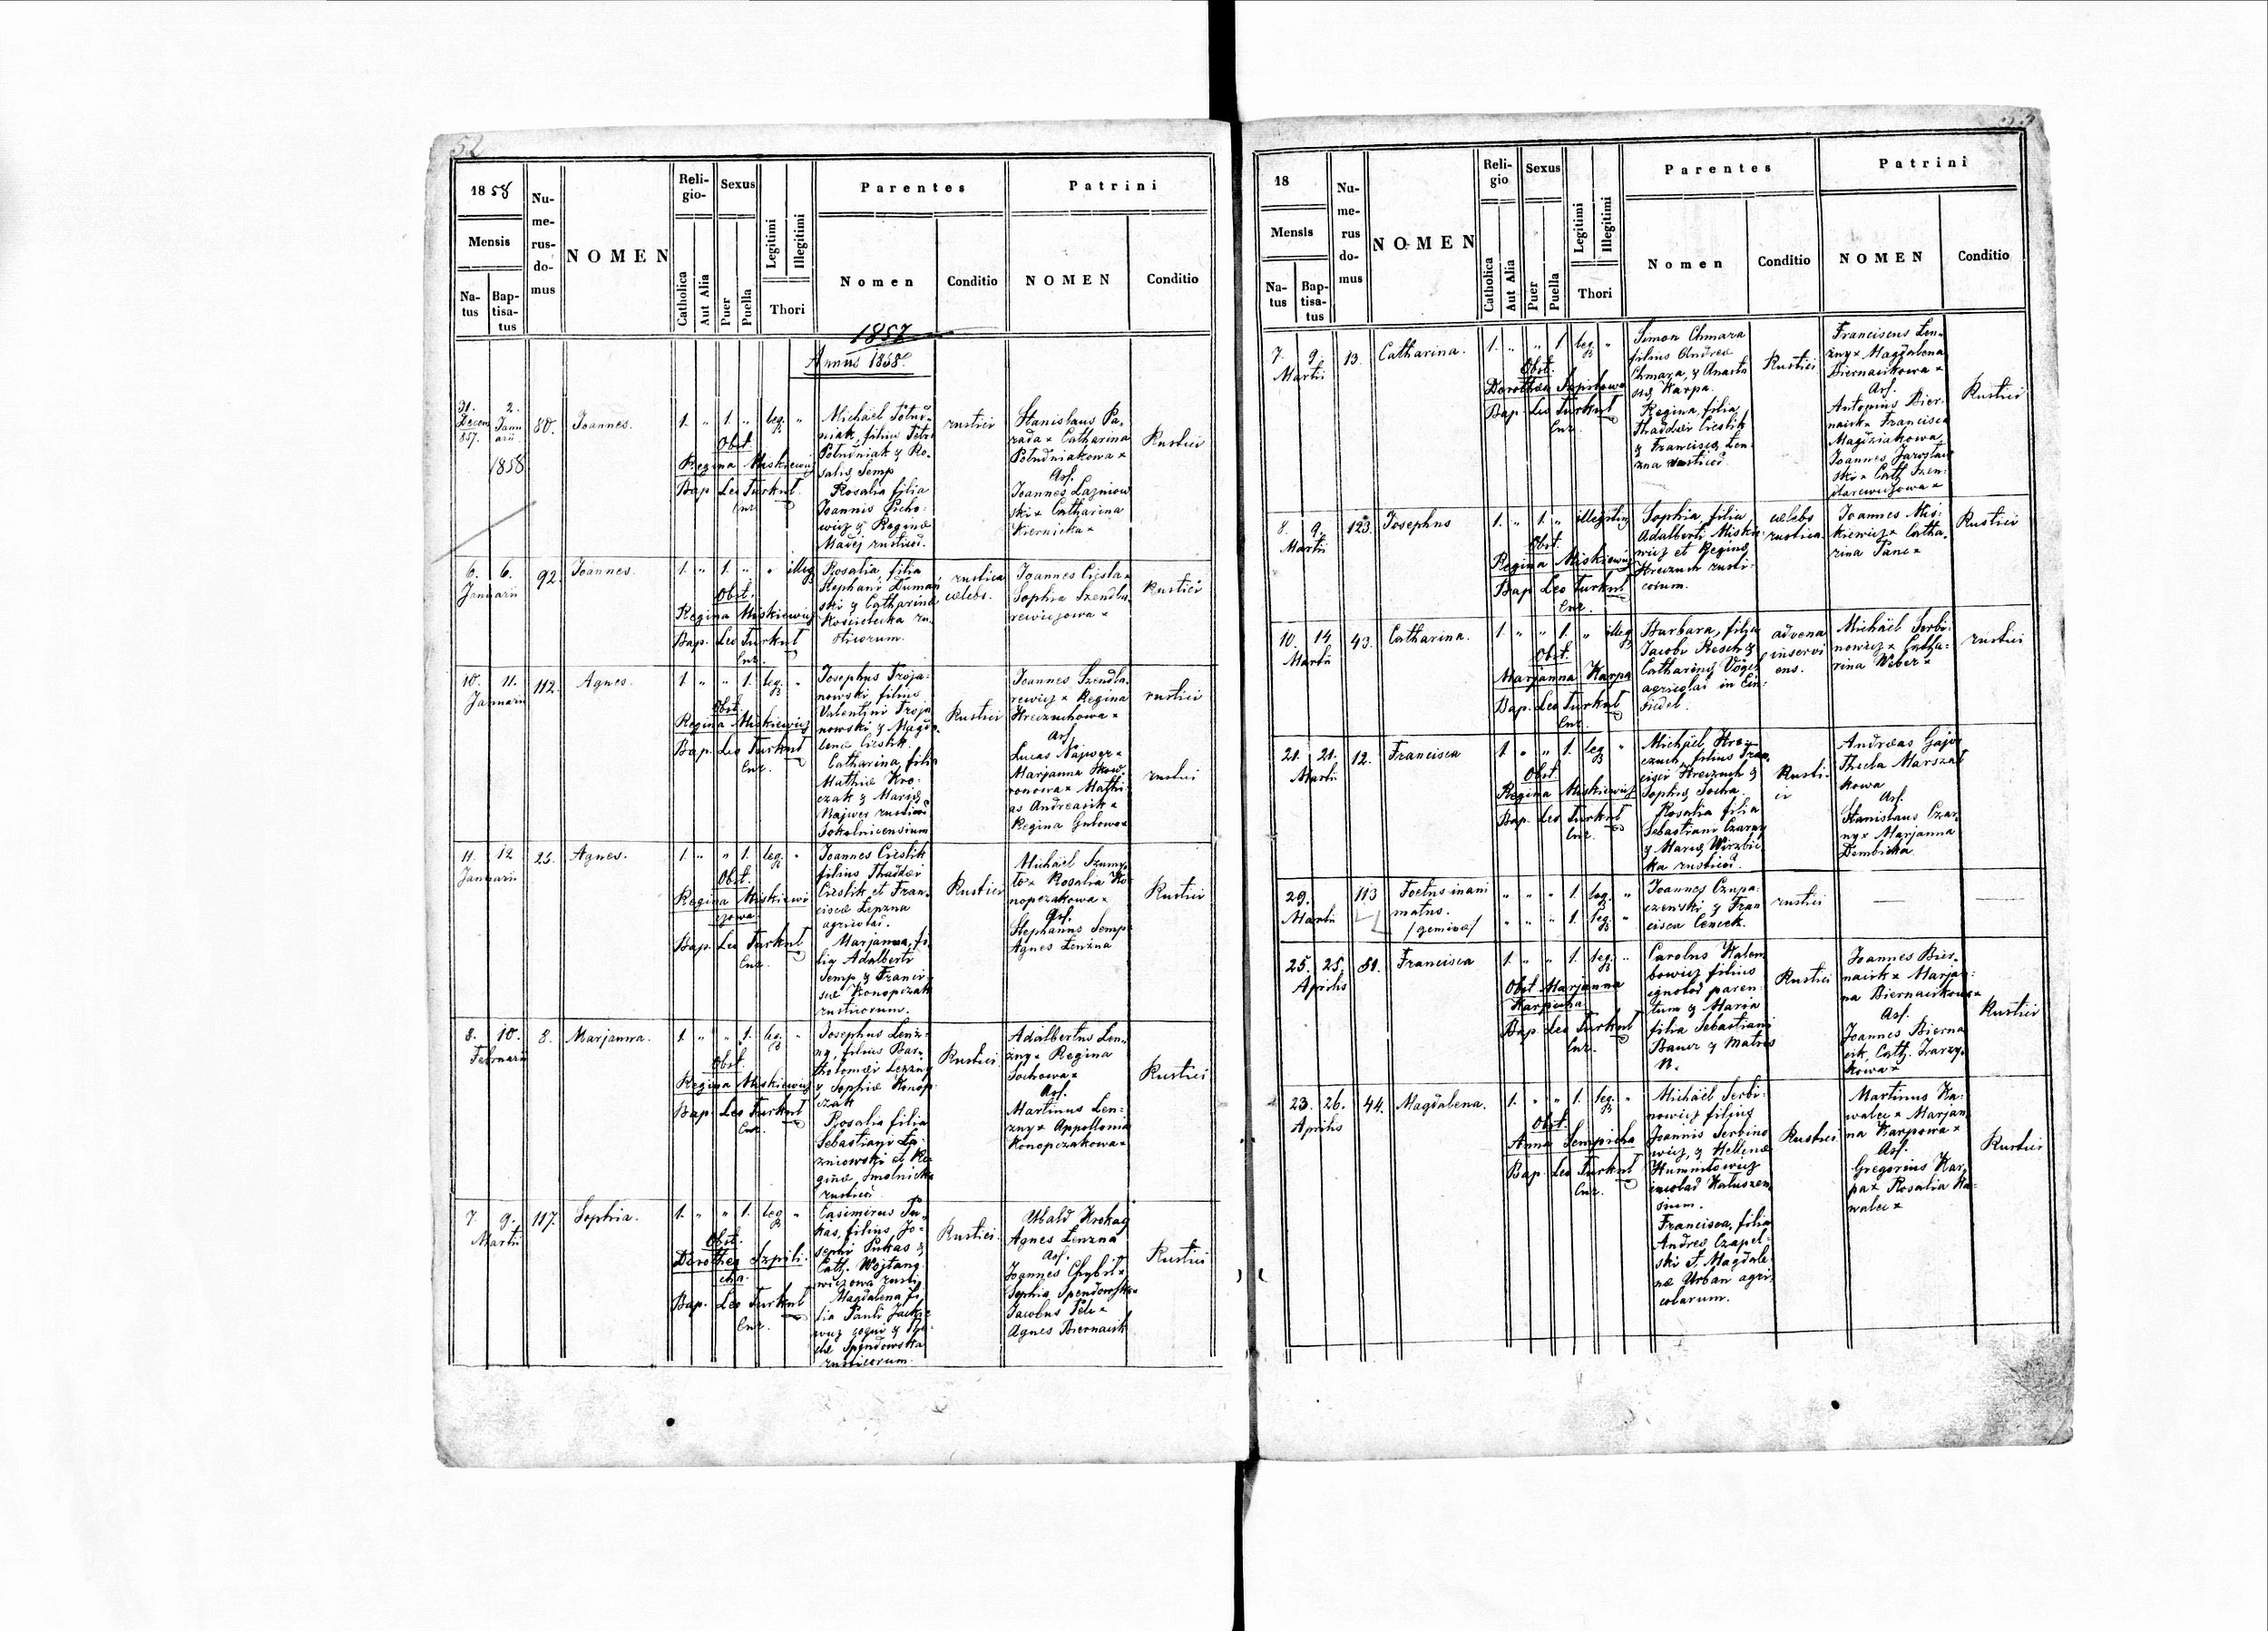 52
1858
Mensis
Na-
tus
Bap-
tisa-
tus
Nu-
me-
rus-
do-
mus
NOMEN
Reli-
gio-
Catholica
Aut Alia
Sexus
Puer
Puella
Legitimi
Illegitimi
Thori
Parentes
Nomen
Conditio
Patrini
NOMEN
Conditio
1857
Annus 1858.
31. 2.
Decem Janu
857. arii
1858
80.
Joannes.
1. " 1. " leg. "
Obst.
Regina Miskiewicz
Bap Leo Turkuł
Michäel Połud-
niak, filius Petri
Południak & Ro-
salię Semp
Rosalia filia
Joannis Picho-
wicz & Reginæ
Madej rusticor.
rustici
Stanislaus Pa-
rada x Catharina
Południakowa x
Ass.
Joannes Lazniow
ski x Catharina
Kiernicka x
Rustici
6. 6.
Januarii
92.
Joannes.
1. " 1. " " illeg
Obst.
Regina Miskiewicz
Bap. Leo Turkuł
Rosalia, filia
Stephani Duman
ski & Catharina
Kościelecka ru-
sticorum.
rustica
cælebs.
Joannes Cieśla x
Sophia Szendla-
rewiczowa x
Rustici
10. 11.
Januarii
112.
Agnes.
1 " " 1. leg. "
Obst.
Regina Miskiewicz
Bap. Leo Turkuł
Josephus Troja-
nowski filius
Valentini Troja
nowski & Magda-
lenæ Cieślik.
Catharina, filia
Mathiæ Kro-
czak & Marię
Najwer rusticor
Sokolnicensium
Rustici
Joannes Szendla-
rewicz x Regina
Hreczuchowa x
Ass.
Lucas Najwer x
Marjanna Skow-
ronowa x Mathi-
as Andreasik x
Regina Gutowa x
rustici
rustici
11. 12
Januarii
25.
Agnes.
1. " " 1. leg. "
Obst.
Regina Miskiewi
czowa
Bap. Leo Turkuł
Joannes Cieślik
filius Thaddæi
Cieślik et Fran-
ciscæ Lenzna
agricolar.
Marjanna, fi-
lia Adalberti
Semp & Franci-
scæ Konopczak
rusticorum.
Rustici
Michäel Szumy-
ło x Rosalia Ko-
nopczakowa x
Ass.
Stephanus Semp
Agnes Lenzna
Rustici
8. 10.
Februarii
8.
Marjanna.
1. " " 1. leg. "
Obst.
Regina Miskiewicz
Bap. Leo Turkuł
Josephus Lenz-
ny, filius Bar-
tholomæi Lenzny
& Sophiæ Konop-
czak
Rosalia filia
Sebastiani La-
zniowski et Re-
ginæ Smolnicka
rusticor.
Rustici
Adalbertus Len-
zny x Regina
Sochowa x
Ass.
Martinus Len-
zny x Appollonia
Konopczakowa x
Rustici
7. 9.
Martii
117.
Sophia.
1. " " 1. leg "
Obst.
Dorothea Szpili-
cha.
Bap. Leo Turkuł
Casimirus Pu-
kas, filius Jo-
sephi Pukas &
Cath. Wojtano-
wiczowa rusti
Magdalena fi-
lia Pauli
Spendowska
rusticorum.
Rustici.
Ubald Krokag
Agnes Lenzna
Ass.
Joannes Chybił x
Sophia Spendowska
Jacobus Pele x
Agnes Biernacik
Rustici
53
18
Mensis
Na-
tus
Bap-
tisa-
tus
Nu-
me-
rus
do-
mus
NOMEN
Reli-
gio
Catholica
Aut Alia
Sexus
Puer
Puella
Legitimi
Illegitimi
Thori
Parentes
Nomen
Conditio
Patrini
NOMEN
Conditio
7. 9.
Martii
13.
Catharina.
1. " " 1 leg. "
Obst.
Dorothea Szpilowa
Bap. Leo Turkuł
Simon Chmara
filius Andreæ
Chmara, & Anasta
się Karpa.
Regina, filia
Thaddæi Cieślik
& Francisca Len-
zna rusticor
Rustici
Franciscus Len-
zny x Magdalena
Biernacikowa x
Ass.
Antonius Bier-
nacik x Francisca
Magdziakowa
Joannes Jarosław
ski x Cath Szen-
dlarewiczowa x
Rustici
8. 9.
Martii
123.
Josephus
1. " 1. " illegitim
Obst.
Regina Miskiewicz
Bap Leo Turkuł
Sophia, filia
Adalberti Miskie-
wicz et Reginę
Hreczuch rusti-
corum.
cælebs
rustica.
Joannes Mis-
kiewicz x Catha-
rina Panc x
Rustici
10. 14
Martii
43.
Catharina.
1. " " 1. " illeg
Obst.
Marjanna Karpa
Bap. Leo Turkuł
Barbara, filia
Jacobi Resch &
Catharinę Vögel
agricolar in Ein-
siedel.
advena
inservi
ens.
Michäel Serbi-
nowicz x Catha-
rina Weber x
rustici
21. 21.
Martii
12.
Francisca
1. " " 1. leg "
Obst.
Regina Miskiewicz
Bap. Leo Turkuł
Michäel Hre-
czuch, filius Fran-
cisci Hreczuch &
Sophię Socha.
Rosalia filia
Sebastiani Czarny
& Marię Wirzbic
ka rusticor.
Rusti-
ci
Andreas Gajor
Thecla Marszał
kowa
Ass.
Stanislaus Czar-
ny x Marjanna
Dembicka
29.
Martii
113
Foetus inani
matus.
/geminæ/
" " " 1. leg "
" " " 1. leg "
Joannes Czupa-
czewski & Fran
cisca Cencek.
rustici
25. 25.
Aprilis
51.
Francisca
1. " " 1. leg. "
Obst Marjanna
Karpicha
Bap. Leo Turkuł
Carolus Kalem
bowicz filius
ignotor paren-
tum & Maria
filia Sebastiani
Bauer & Matris
N.
Rustici
Joannes Bier-
nacik x Marjan-
na Biernacikowa x
Ass.
Joannes Bierna
cik, Cath. Zarzy-
kowa x
Rustici
23. 26.
Aprilis
44.
Magdalena.
1. " " 1. leg. "
Obst.
Anna Sempicha
Bap. Leo Turkuł
Michäel Serbi-
nowicz filius
Joannis Serbino
wicz, & Hellenæ
Humnitowicz
incolar Kałuszen
sium.
Francisca, filia
Andreę Czapel-
ski & Magdale
næ Urban agri-
colarum.
Rustici
Martinus Ka-
walec x Marjan
na Karpowa x
Ass.
Gregorius Kar-
pa x Rosalia Ka-
walec x
Rustici